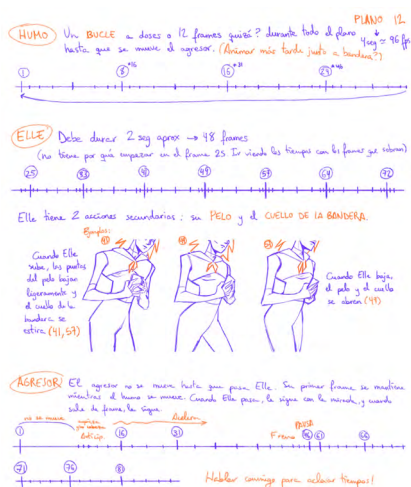 PLANO 12
4 seg ≃ 96 fps
HUMO Un BUCLE a doses o 12 frames quizá? durante todo el plano
hasta que se mueve el agresor. (Animar más tarde junto a bandera?)
1 8 15 23
ELLE Debe durar 2 seg aprox → 48 frames
(no tiene por qué empezar en el frame 25 Ir viendo los tiempos con los frames que sobran)
25 33 41 49 57 64 72
Elle tiene 2 acciones secundarias: su PELO y el CUELLO DE LA BANDERA.
Ejemplos:
Cuando Elle
sube, las puntas
del pelo bajan
ligeramente y
el cuello de la
bandera se
estira (41,57)
Cuando Elle baja,
el pelo y el cuello
se abren (49)
AGRESOR El agresor no se mueve hasta que pasa Elle. Su primer frame se mantiene
mientras el humo se mueve. Cuando Elle pasa, la sigue con la mirada, y cuando
sale de frame, la sigue.
no se mueve
Anticip.
Acelera
Frena
PAUSA
1 16 31 61
71 76 81
Hablar conmigo para aclarar tiempos!